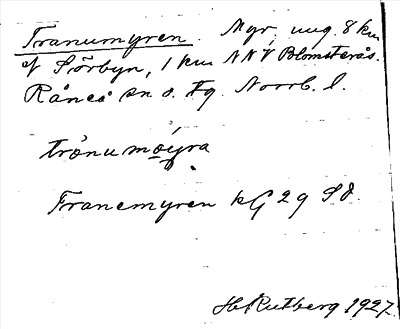 Tranumyren. Myr, ung. 8 km
v Sörbyn, 1 km NNV Blomsterås.
Råneå sn o. fg Norrb. l.
trånumøyra
Tranemyren kG 29 SO.
H. Rutberg 1927.